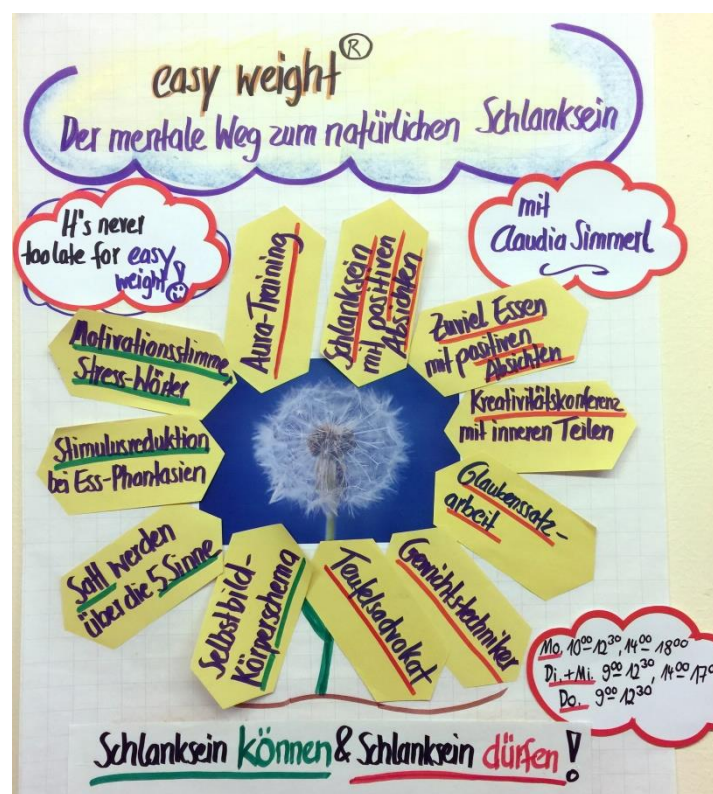 easy weight®
Der mentale Weg zum natürlichen Schlanksein
It's never
too late for easy
weight!
mit
Claudia Simmerl
Aura-Training
Schlanksein
mit positiven
Absichten
Zuviel Essen
mit positiven
Absichten
Kreativitätskonferenz
mit inneren Teilen
Glaubenssatz-
arbeit
Gewichtstechniker
Teufelsadvokat
Selbstbild-
Körperschema
Satt werden
über die 5 Sinne
Stimulusreduktion
bei Ess-Phantasien
Motivationsstimme,
Stress-Wörter
Mo. 10⁰⁰ 12³⁰, 14⁰⁰ 18⁰⁰
Di.+Mi. 9⁰⁰ 12³⁰, 14⁰⁰ 17⁰
Do. 9⁰⁰ 12³⁰
Schlanksein können & Schlanksein dürfen!